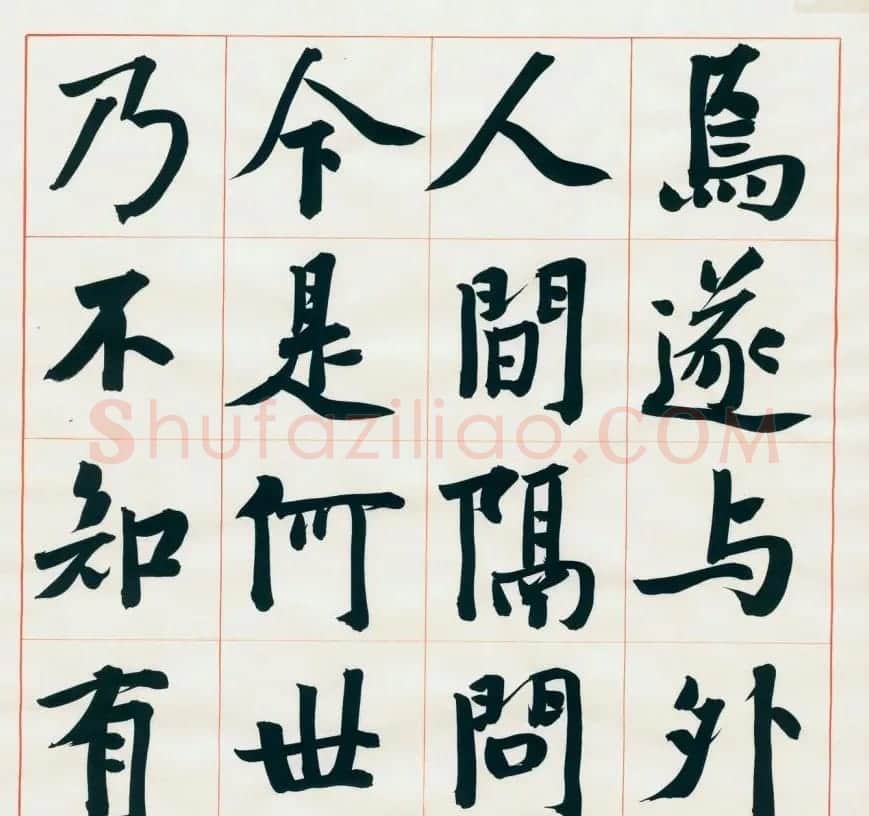 焉遂与外
人間隔問
今是何世
乃不知有
Shufaziliao.COM